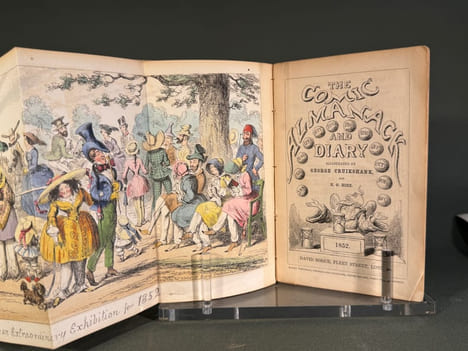 Extraordinary Exhibition for 1852
THE
COMIC
ALMANACK
AND
DIARY
ILLUSTRATED BY
GEORGE CRUIKSHANK,
AND
H. G. HINE.
1852.
DAVID BOGUE, FLEET STREET,